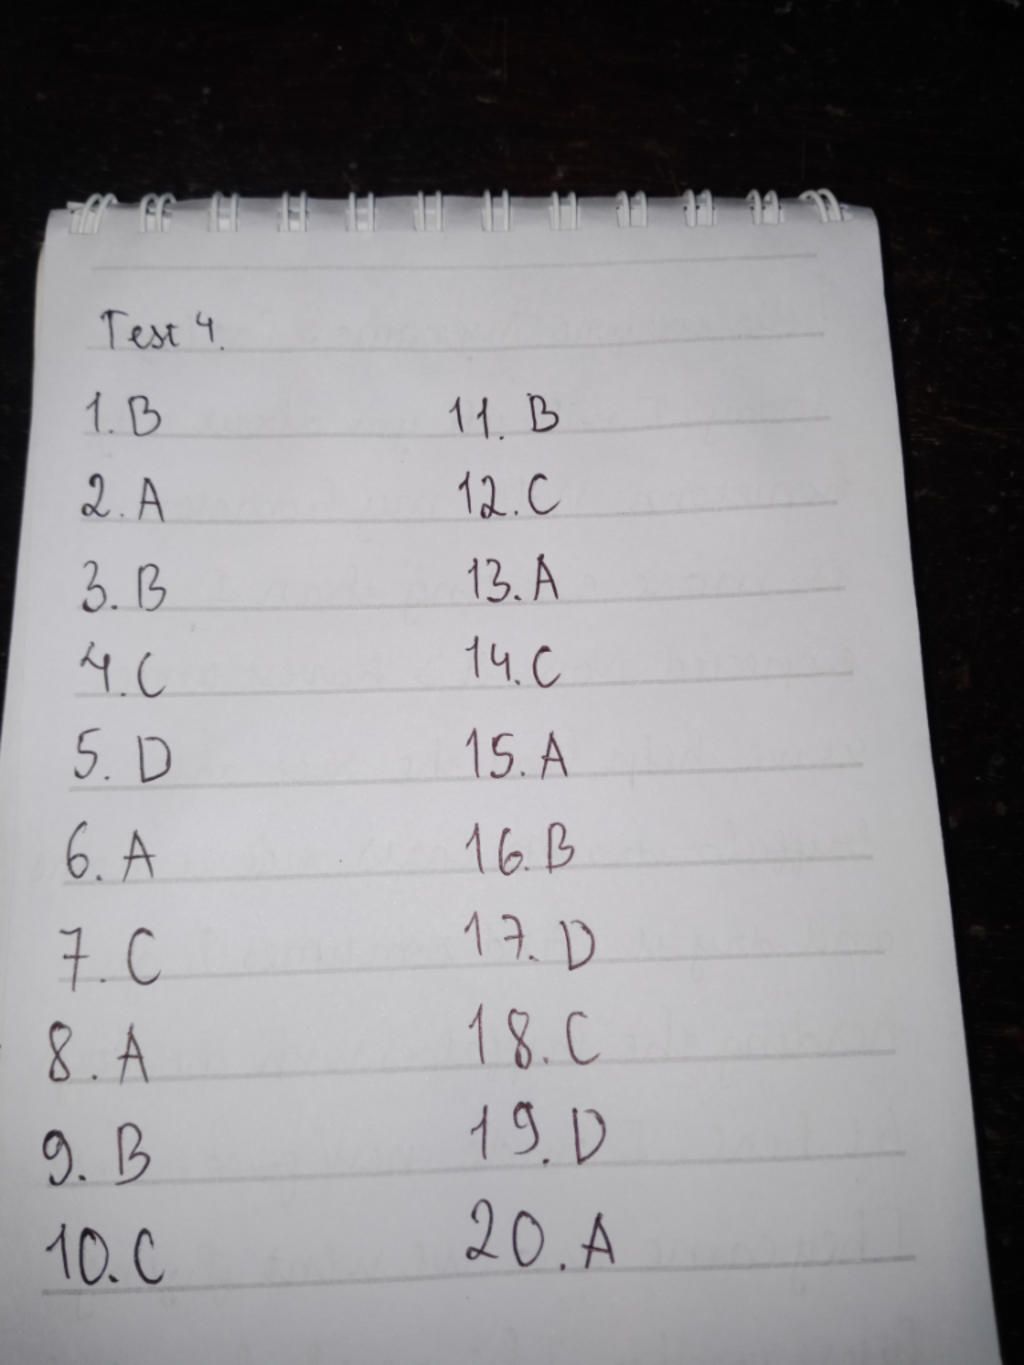 Test 4.
1. B
2. A
3. B
4. C
5. D
6. A
7. C
8. A
9. B
10. C
11. B
12. C
13. A
14. C
15. A
16. B
17. D
18. C
19. D
20. A